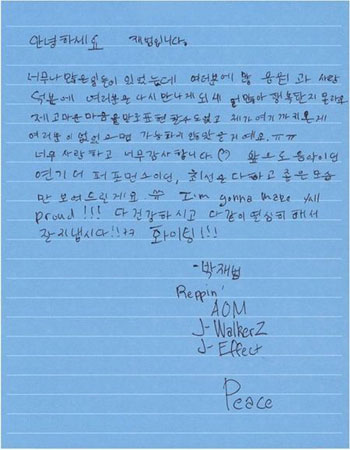 안녕하세요 재범입니다.
너무나 많은일들이 있었는데 여러분에 많 응원과 사랑
덕분에 여러분을 다시 만나게 되 얼마나 행복한지 몰라요
제 고마운 마음을 말로 표현 할수도없고 제가 여기까지온게
여러분이 없었으면 가능하지 않았을거예요. ㅠㅠ
너무 사랑하고 너무감사합니다 ♡ 앞으로 음악이던
연기 더 퍼포먼스이던, 최선을 다하고 좋은 모습
만 보여드릴게요 ㅠㅠ I'm gonna make yall
proud!!! 다 건강하시고 다같이 열심히 해서
잘지냅시다!!ㅋㅋ 화이팅!!!
- 박재범
Reppin'
AOM
J-WalkerZ
J-Effect
Peace